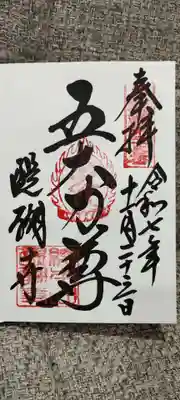 奉拝
令和七年
十一月二十三日
五大力尊
醍醐寺